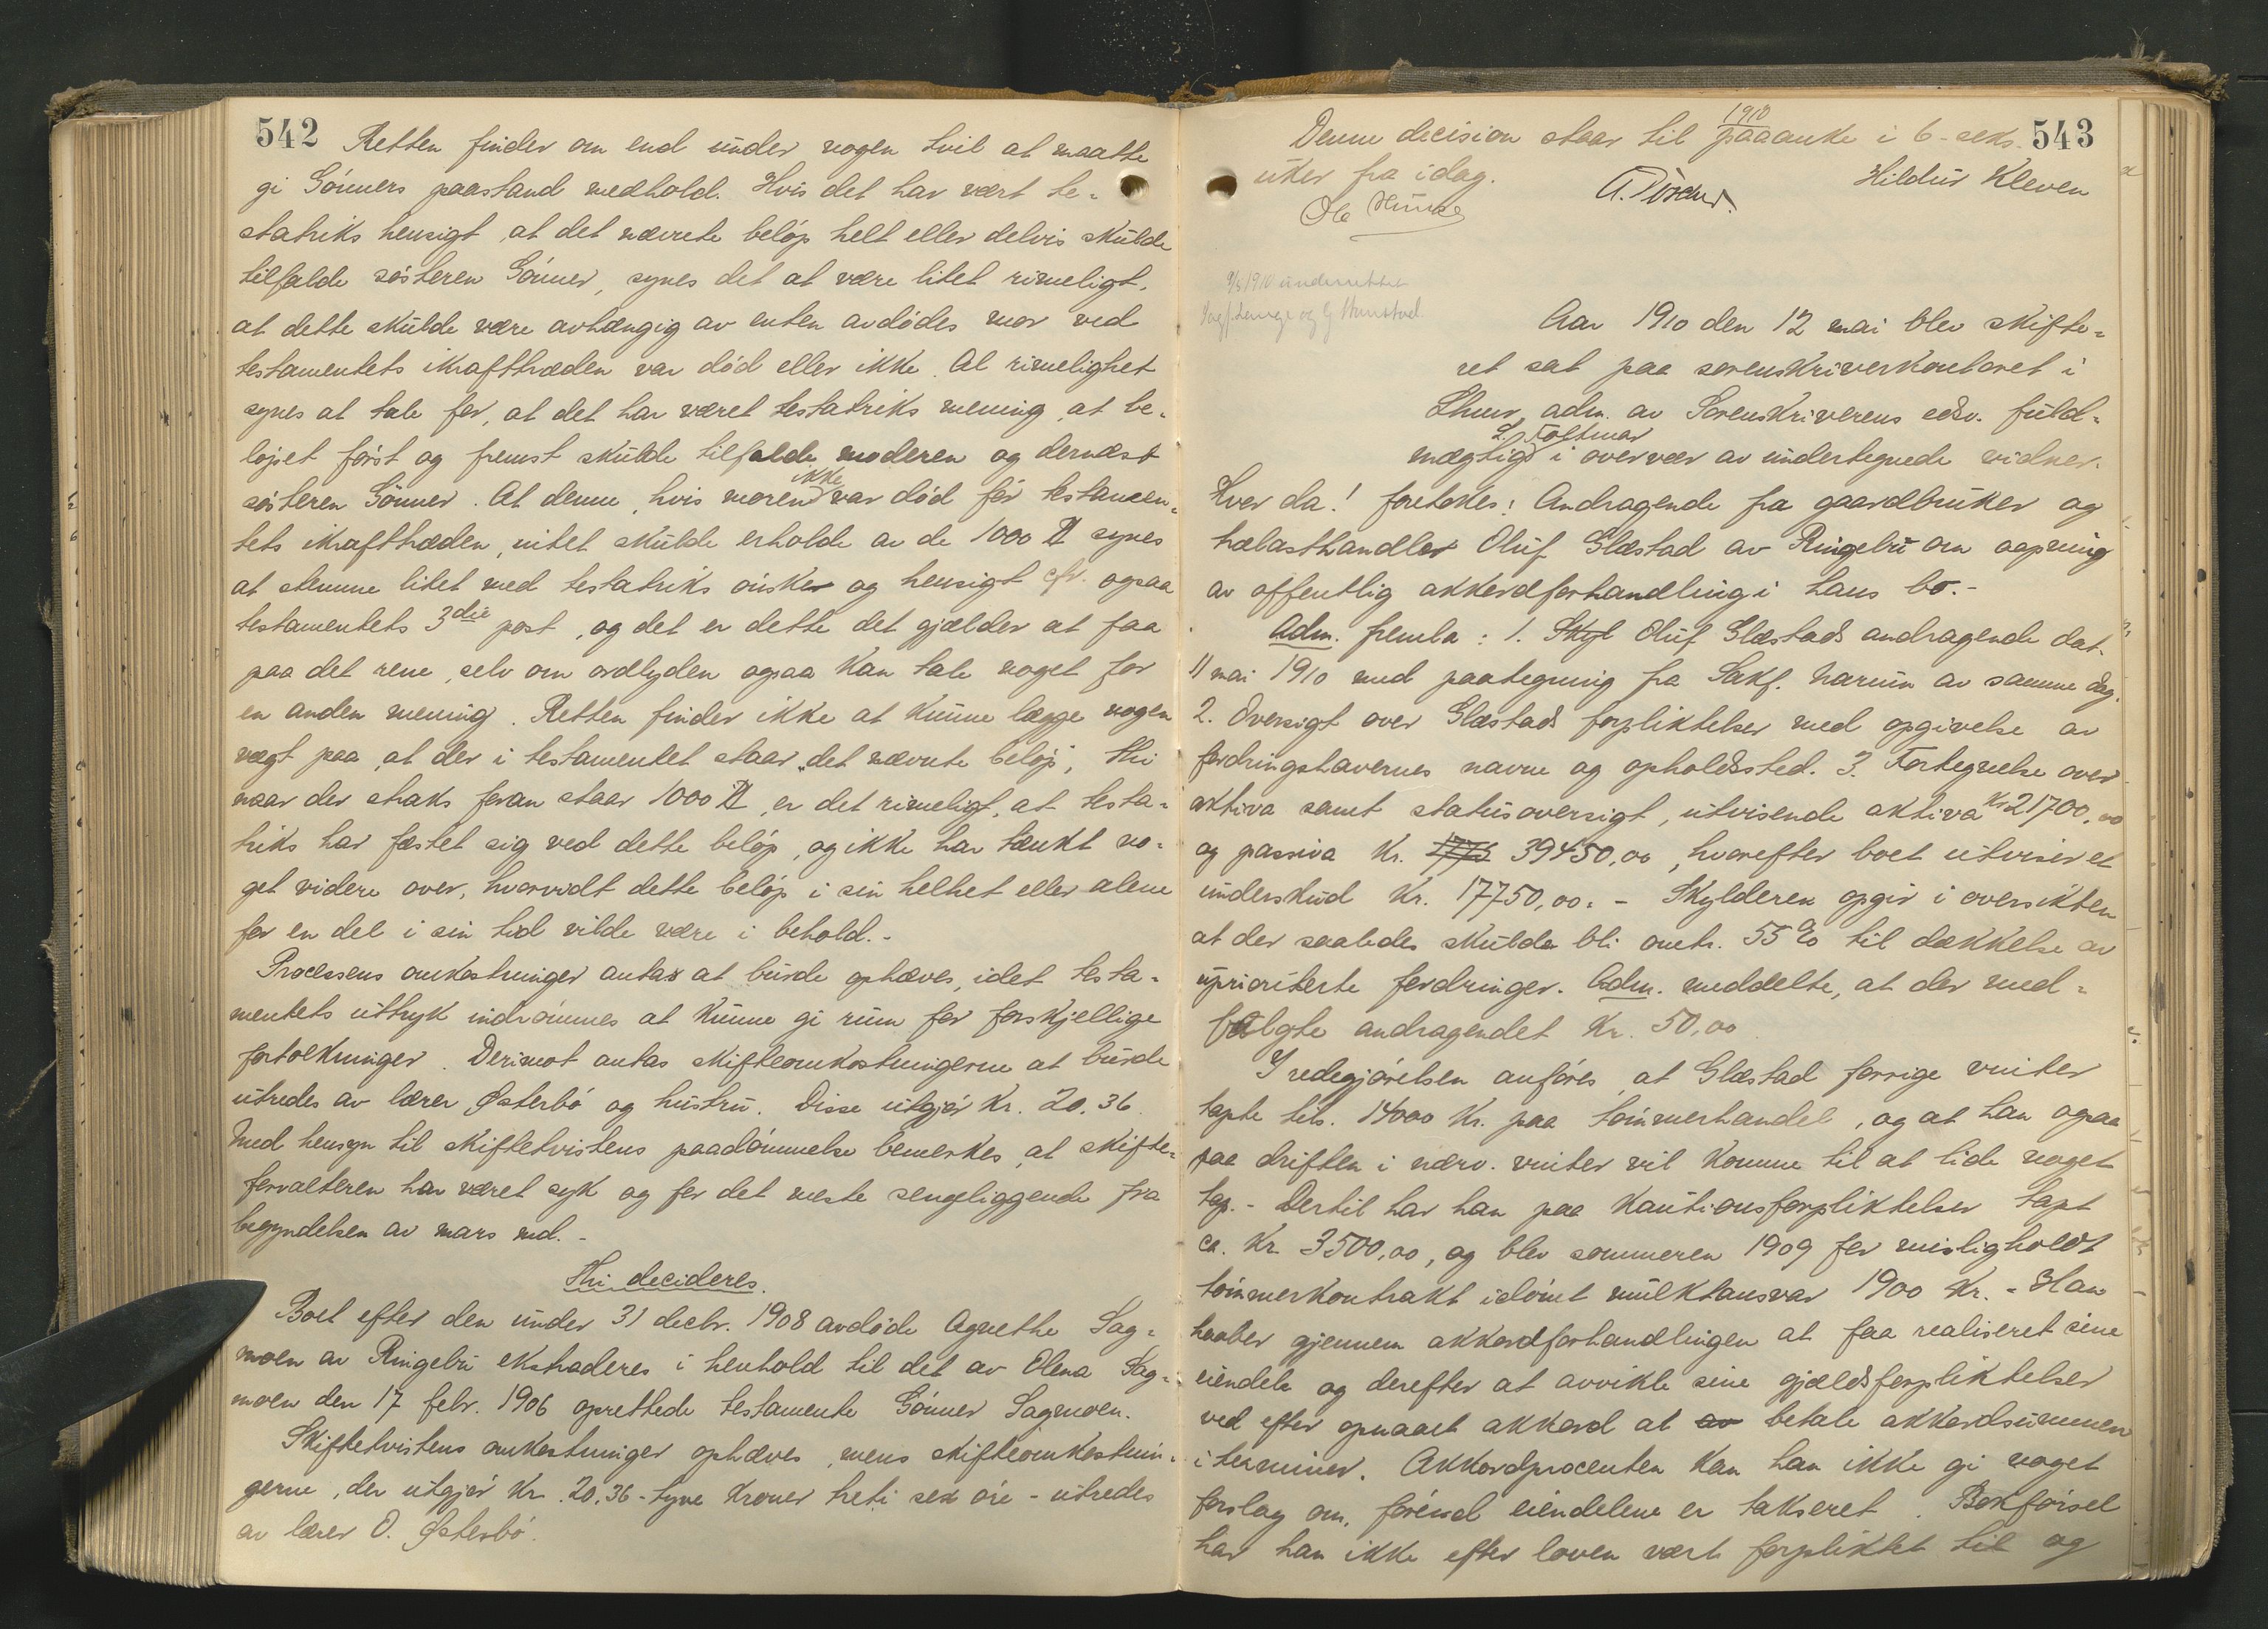 542
Retten finder om end under nogen tvil at maatte
gi Gönners paastand medhold. Hvis det har vært te-
statriks hensigt, at det nævnte beløp helt eller delvis skulde
tilfalde søsteren Gönner, synes det at være litet rimeligt,
at dette skulde være avhængig av enten avdødes mor ved
testamentets ikrafttræden var død eller ikke. Al rimelighet
synes at tale for, at det har været testatriks mening, at be-
løpet først og fremst skulde tilfalde moderen og dernæst
søsteren Gönner. At denne, hvis moren ikke var død før testamen-
tets ikrafttræden, intet skulde erholde av de 1000 Kr synes
at stemme litet med testatriks ønske og hensigt cfr. ogsaa
testamentets 3die post, og det er dette det gjælder at faa
paa det rene, selv om ordlyden ogsaa kan tale noget for
en anden mening. Retten finder ikke at kunne lægge nogen
vægt paa, at der i testamentet staar „det nævnte beløp", thi
naar der straks foran staar 1000 Kr, er det rimeligt, at testa-
triks har fæstet sig ved dette beløp, og ikke har tænkt no-
get videre over, hvorvidt dette beløp i sin helhet eller alene
for en del i sin tid vilde være i behold.-
Processens omkostninger antas at burde ophæves, idet testa-
mentets uttryk indrømmes at kunne gi rum for forskjellige
fortolkninger. Derimot antas skifteomkostningerne at burde
utredes av lærer Østerbö og hustru. Disse utgjør Kr. 20.36.
Med hensyn til skiftetvistens paadömmelse bemerkes, at skifte-
forvalteren har været syk og for det meste sengeliggende fra
begyndelsen av mars md.-
Thi decideres.
Boet efter den under 31 decbr. 1908 avdøde Agnethe Sag-
moen av Ringebu ekstraderes i henhold til det av Olena Sag-
moen den 17 febr. 1906 oprettede testamente Gönner Sagmoen.
Skiftetvistens omkostninger ophæves, mens skifteomkostnin-
gerne, der utgjør Kr. 20,36 - tyve kroner treti sex øre - utredes
av lærer O. Østerbö.
543
1910
Denne decision staar til paaanke i 6 - seks
uker fra idag.
Hildur Kleven
9/5 1910 underrettet
Aar 1910 den 12 mai blev skifte-
ret sat paa sorenskriverkontoret i
adm. av Sorenskriverens edsv. fuld-
mægtig L. Toftmar i overvær av undertegnede vidner.
Hvor da! foretokes: Andragende fra gaardbruker og
trælasthandler Oluf Glæstad av Ringebu om aapning
av offentlig akkordforhandling i hans bo.-
Adm. fremla: 1. Oluf Glæstads andragende dat.
11 mai 1910 med paategning fra Sakf. Narum av samme dag.
2. Oversigt over Glæstads forpliktelser med opgivelse av
fordringshavernes navne og opholdssted. 3. Fortegnelse over
aktiva samt statusoversigt, utvisende aktiva Kr 21700,00
og passiva Kr. 39450,00, hvorefter boet utviser et
underskud Kr. 17750,00. - Skylderen opgir i oversikten
at der saaledes skulde bli omtr. 55 % til dækkelse av
uprioriterte fordringer. Adm. meddelte, at der med-
fulgte andragendet Kr. 50,00
I redegjørelsen anføres, at Glæstad forrige vinter
tapte tils. 14000 Kr. paa tømmerhandel, og at han ogsaa
paa driften i nærv. vinter vil komme til at lide noget
tap. - Dertil har han paa kautionsforpliktelser tapt
ca. Kr. 3500,00, og blev sommeren 1909 for misligholdt
tømmerkontrakt idømt mulktansvar 1900 Kr. - Han
haaber gjennem akkordforhandlingen at faa realiseret sine
eiendele og derefter at avvikle sine gjældsforpliktelser
ved efter opnaaet akkord at av betale akkordsummen
i terminer. Akkordprocenten kan han ikke gi noget
forslag om, førend eiendelene er takseret. Bokførsel
har han ikke efter loven vært forpliktet til og